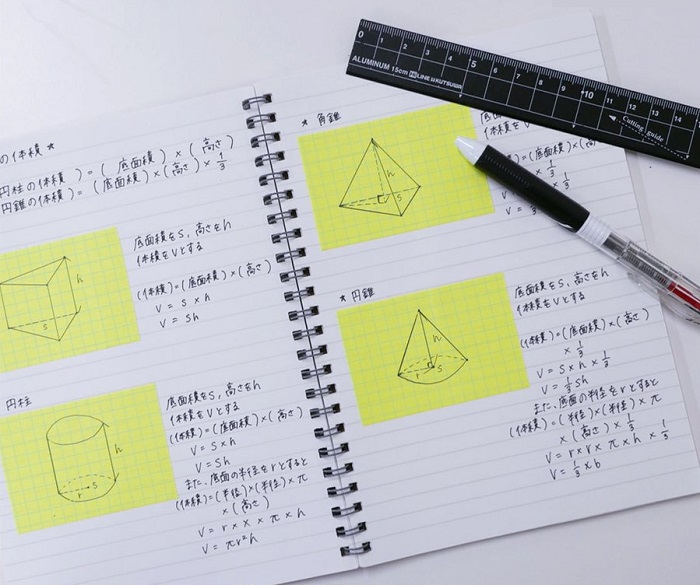 の体積 ★
円柱の体積)=(底面積)×(高さ)
円錐の体積)=(底面積)×(高さ)×1/3
h
s
底面積をS、高さをh
体積をVとする
(体積)=(底面積)×(高さ)
V = S × h
V = Sh
円柱
h
r
s
底面積をS、高さをh
体積をVとする
(体積)=(底面積)×(高さ)
V = S × h
V = Sh
また、底面の半径をrとすると
(体積)=(半径)×(半径)×π
×(高さ)
V = r × × π × h
V = πr²h
★ 角錐
h
s
底面
体積を
)=(底面積)×(高
× 1/3
× 1/3
V =
★ 円錐
h
r
s
底面積をS、高さをh
体積をVとする
(体積)=(底面積)×(高さ)
× 1/3
V = S × h × 1/3
V = 1/3 Sh
また、底面の半径をrとすると
(体積)=(半径)×(半径)×π
×(高さ)× 1/3
V = r × r × π × h × 1/3
V = 1/3 × b
0 1 2 3 4 5 6 7 8 9 10 11 12 13 14
ALUMINUM 15cm LINE KUTSUWA
Cutting guide